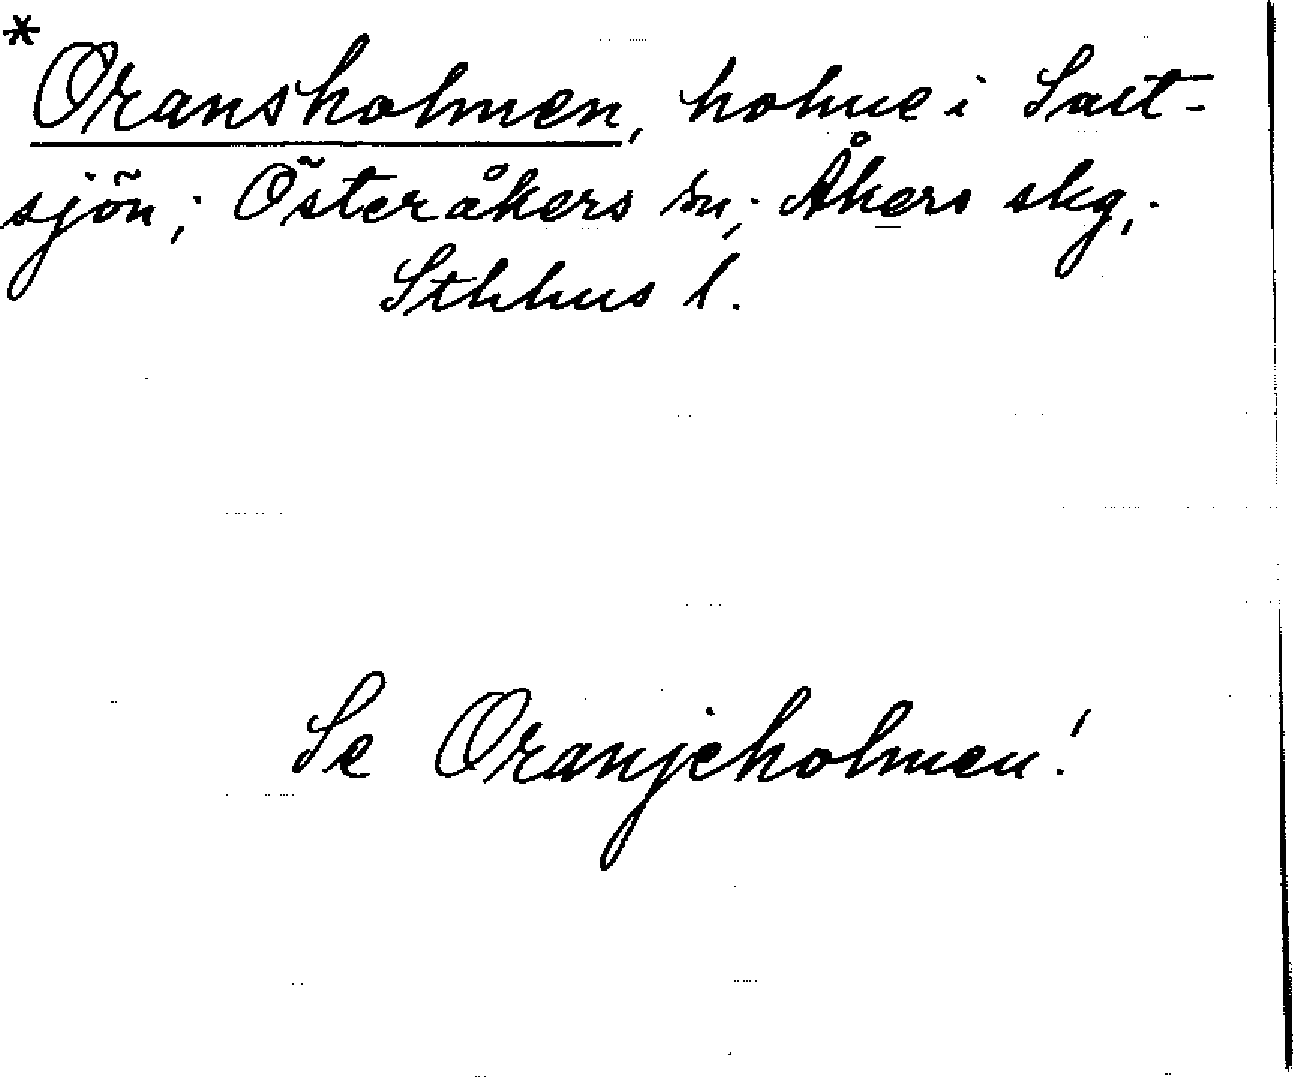 * Oransholmen, holme i Salt-
sjön; Österåkers sn; Åkers skg,
Sthlms l.
Se Oranjeholmen!